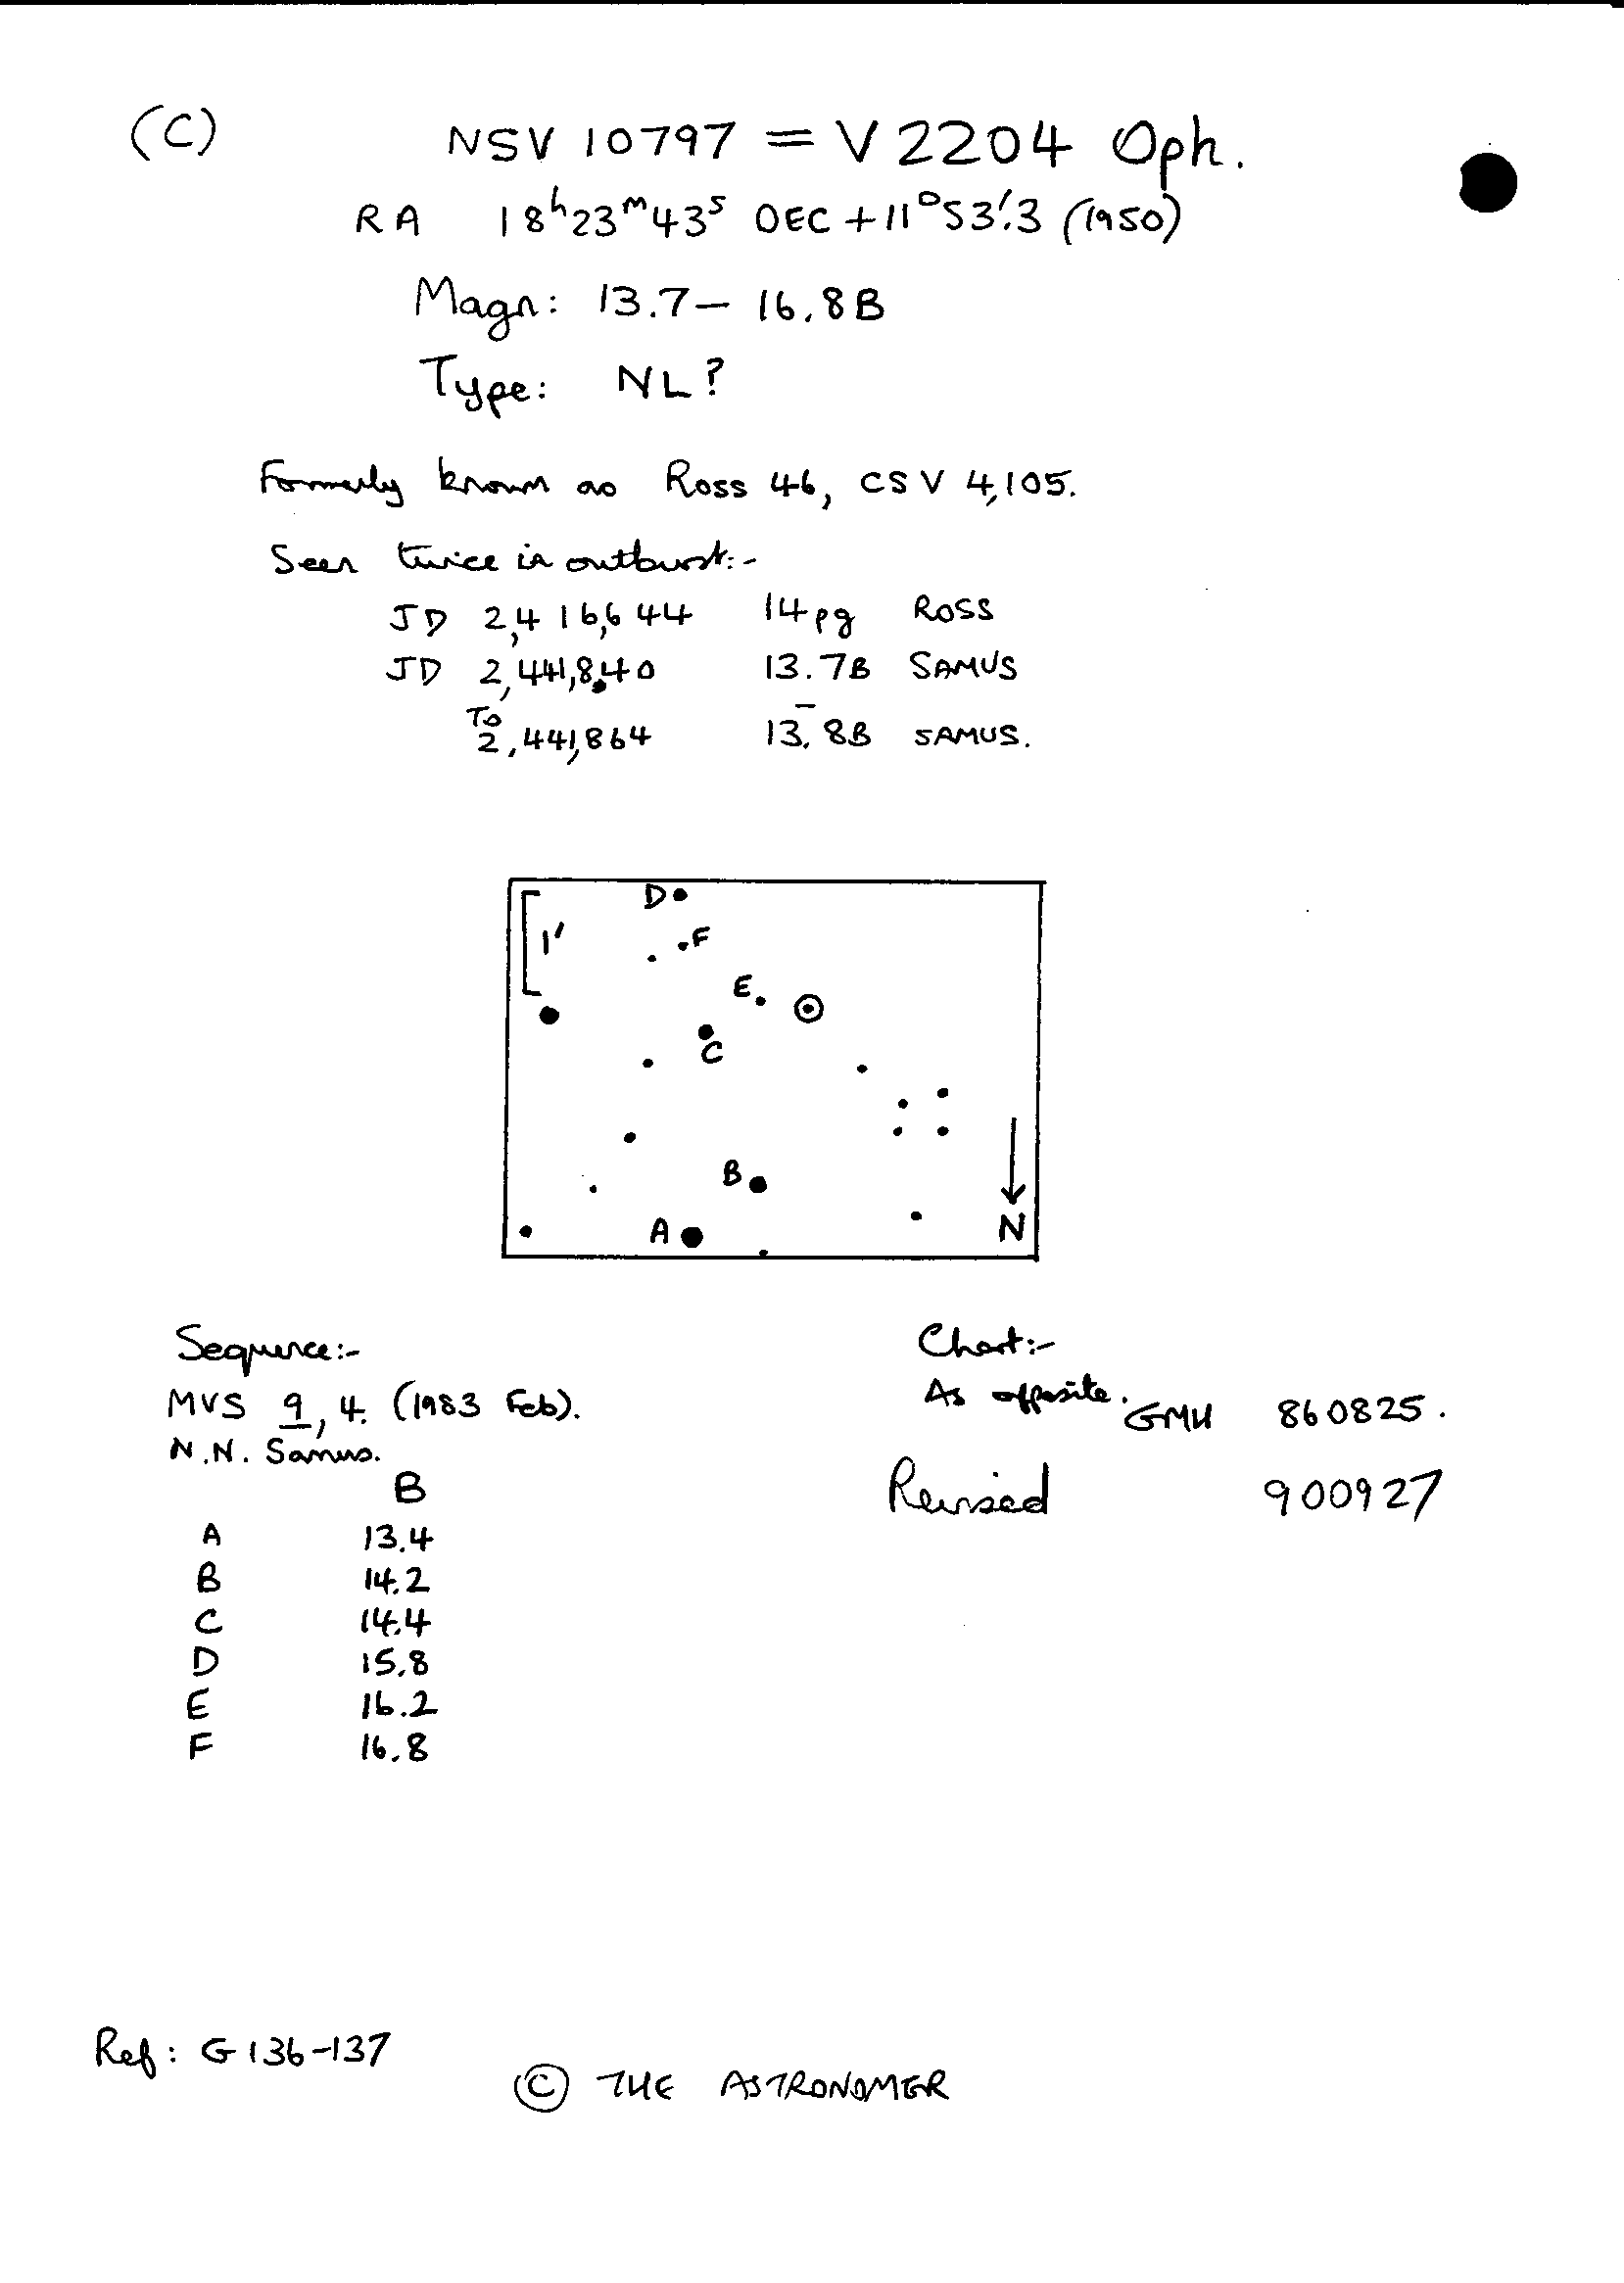 (C)
NSV 10797 = V2204 Oph.
RA 18h23m43s DEC +11°53'.3 (1950)
Magn: 13.7 – 16.8B
Type: NL?
Formerly known as Ross 46, CSV 4,105.
Seen twice in outburst:-
JD 2,416,644 14pg ROSS
JD 2,441,840 13.7B SAMUS
TO –
2,441,864 13.8B SAMUS.
D
F
1'
E
C
B
A
N
Sequence:-
MVS 9, 4. (1983 Feb).
N.N. Samus.
B
A 13.4
B 14.2
C 14.4
D 15.8
E 16.2
F 16.8
Chart:-
As opposite.
GMH 860825.
Revised 900927
Ref: G136-137
© THE ASTRONOMER